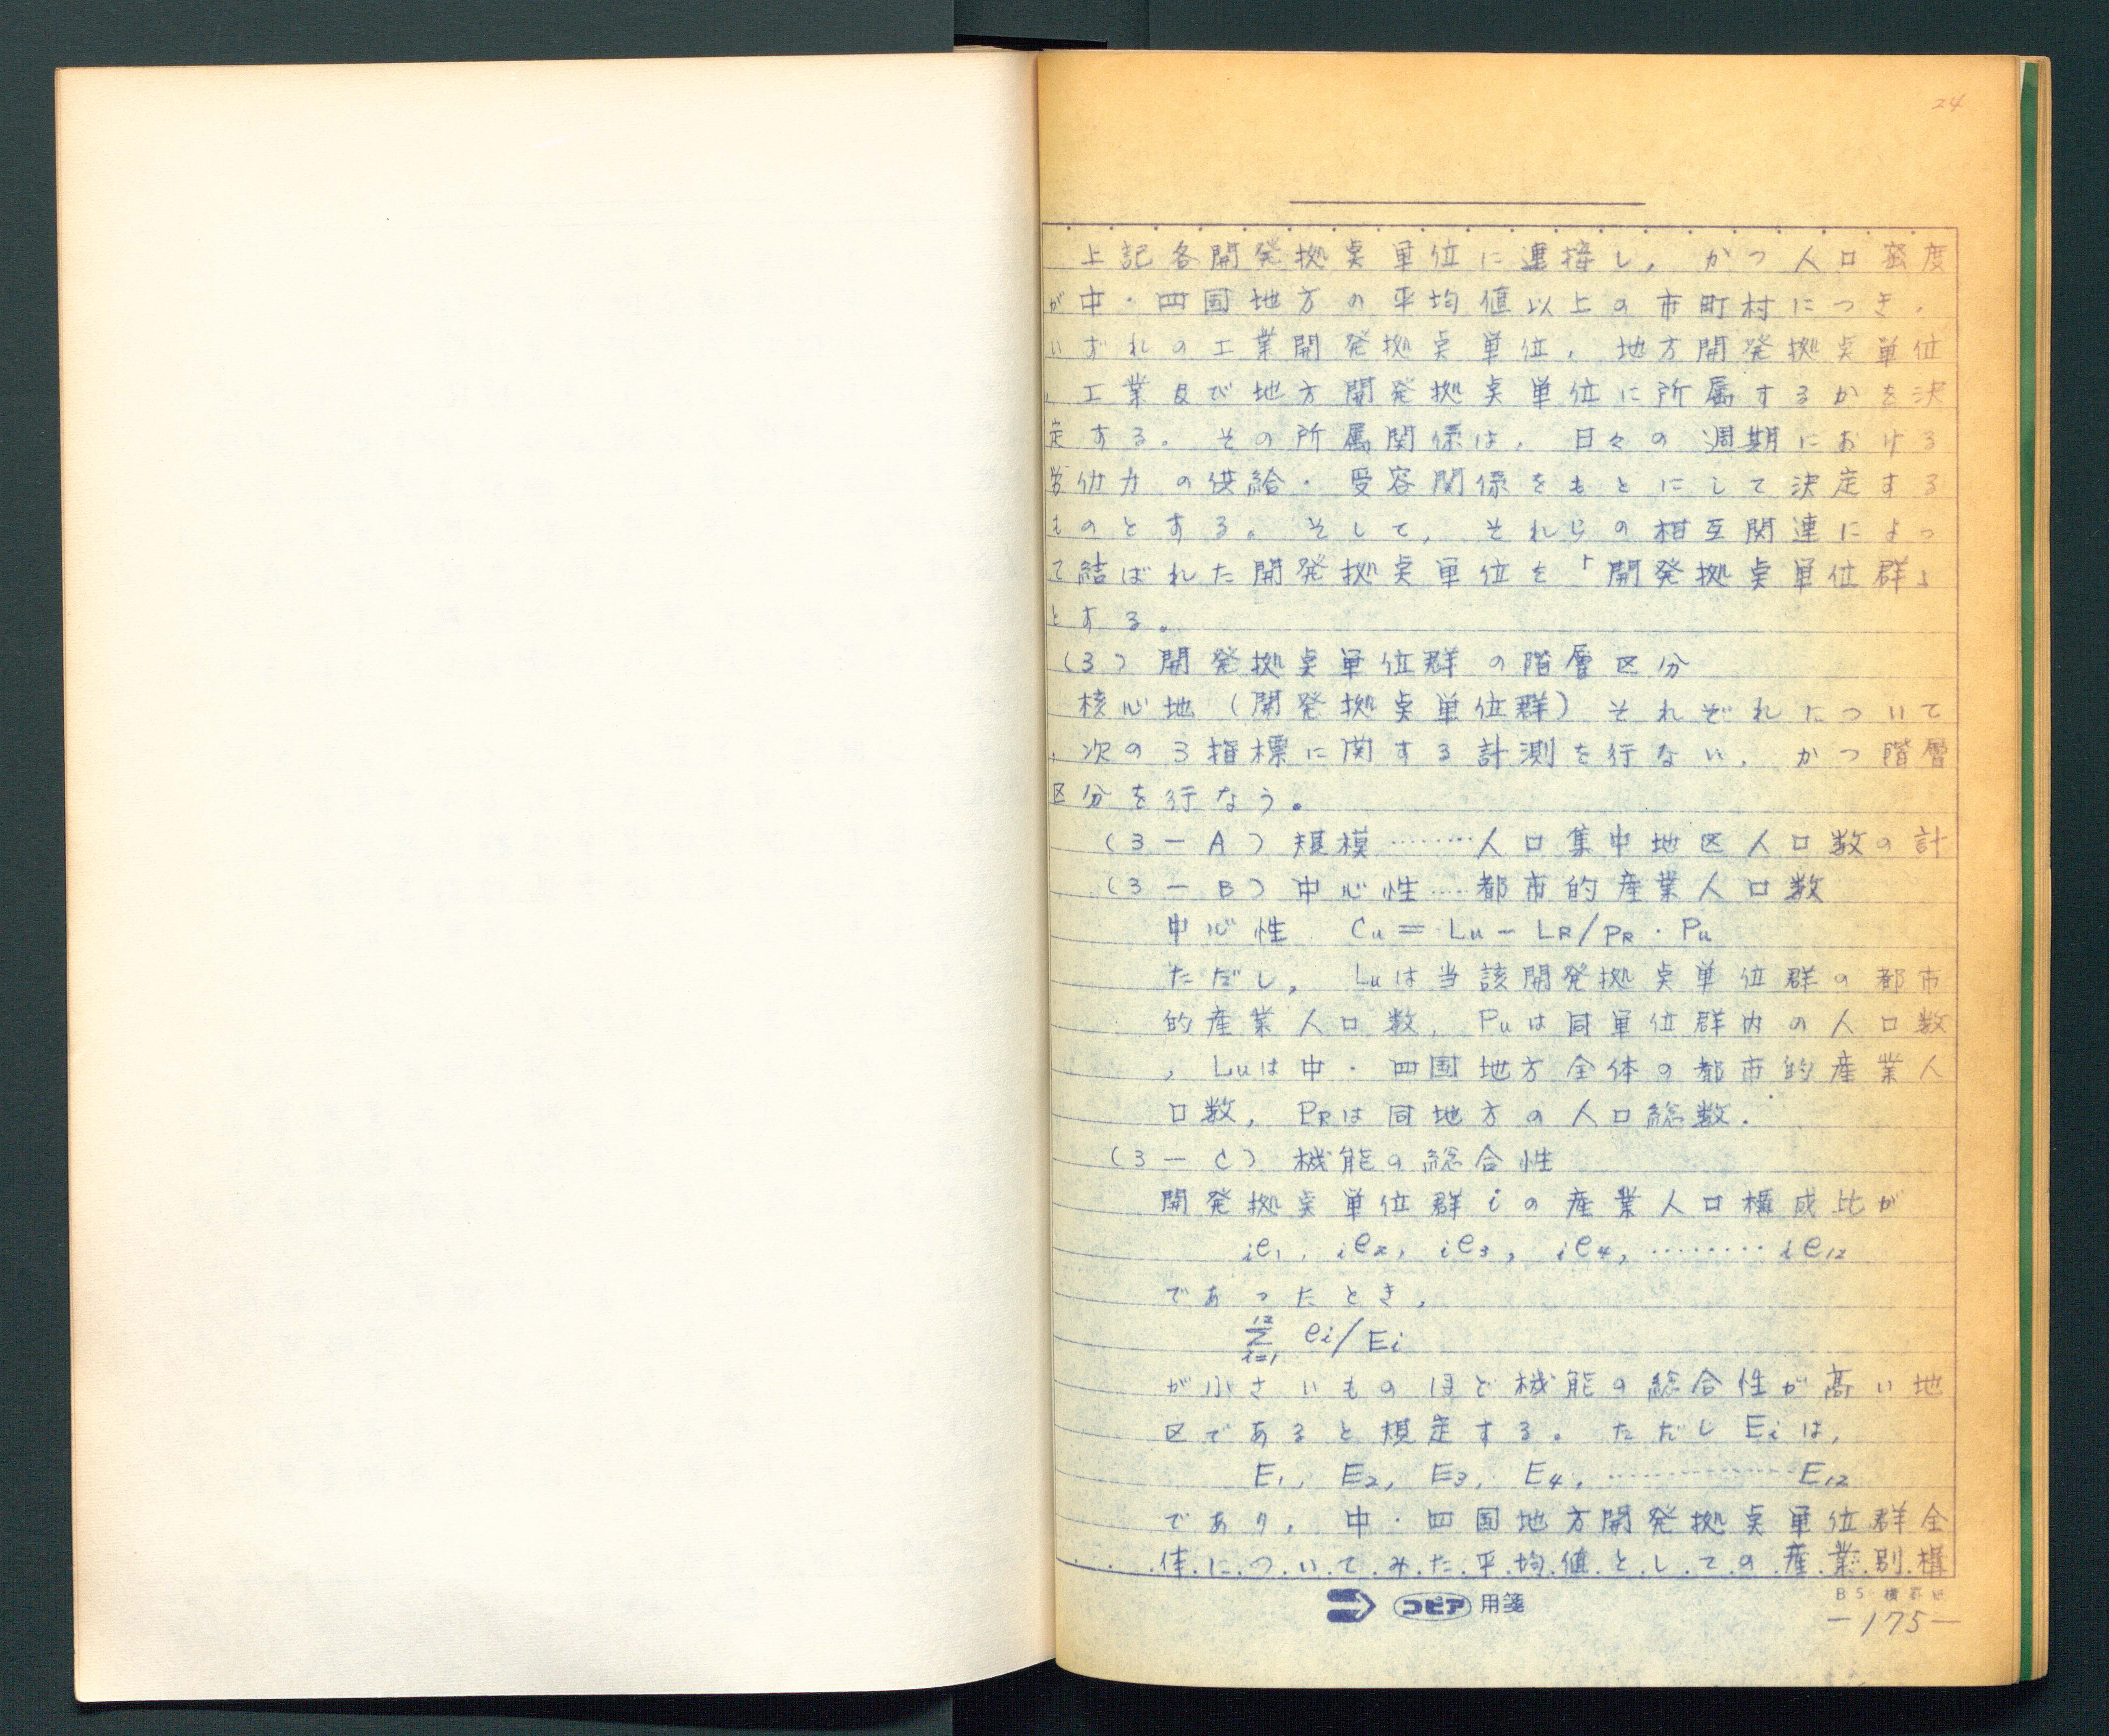 24
上記各開発拠点単位に連接し，かつ人口密度
が中・四国地方の平均値以上の市町村につき，
いずれの工業開発拠点単位，地方開発拠点単位
，工業及び地方開発拠点単位に所属するかを決
定する。その所属関係は，日々の週期における
労仂力の供給・受容関係をもとにして決定する
ものとする。そして，それらの相互関連によっ
て結ばれた開発拠点単位を「開発拠点単位群」
とする。
(3) 開発拠点単位群の階層区分
核心地（開発拠点単位群）それぞれについて
，次の3指標に関する計測を行ない，かつ階層
区分を行なう。
(3－A) 規模………人口集中地区人口数の計
(3－B) 中心性……都市的産業人口数
中心性 Cu＝Lu－LR/PR・Pu
ただし，Luは当該開発拠点単位群の都市
的産業人口数，Puは同単位群内の人口数
，Luは中・四国地方全体の都市的産業人
口数，PRは同地方の人口総数．
(3－C) 機能の総合性
開発拠点単位群iの産業人口構成比が
ie1，ie2，ie3，ie4，………ie12
であったとき，
12Σi=1 ei/Ei
が小さいものほど機能の総合性が高い地
区であると規定する。ただしEiは，
E1，E2，E3，E4，……………E12
であり，中・四国地方開発拠点単位群全
体についてみた平均値としての産業別構
コピア 用箋
B5 横罫
－175－